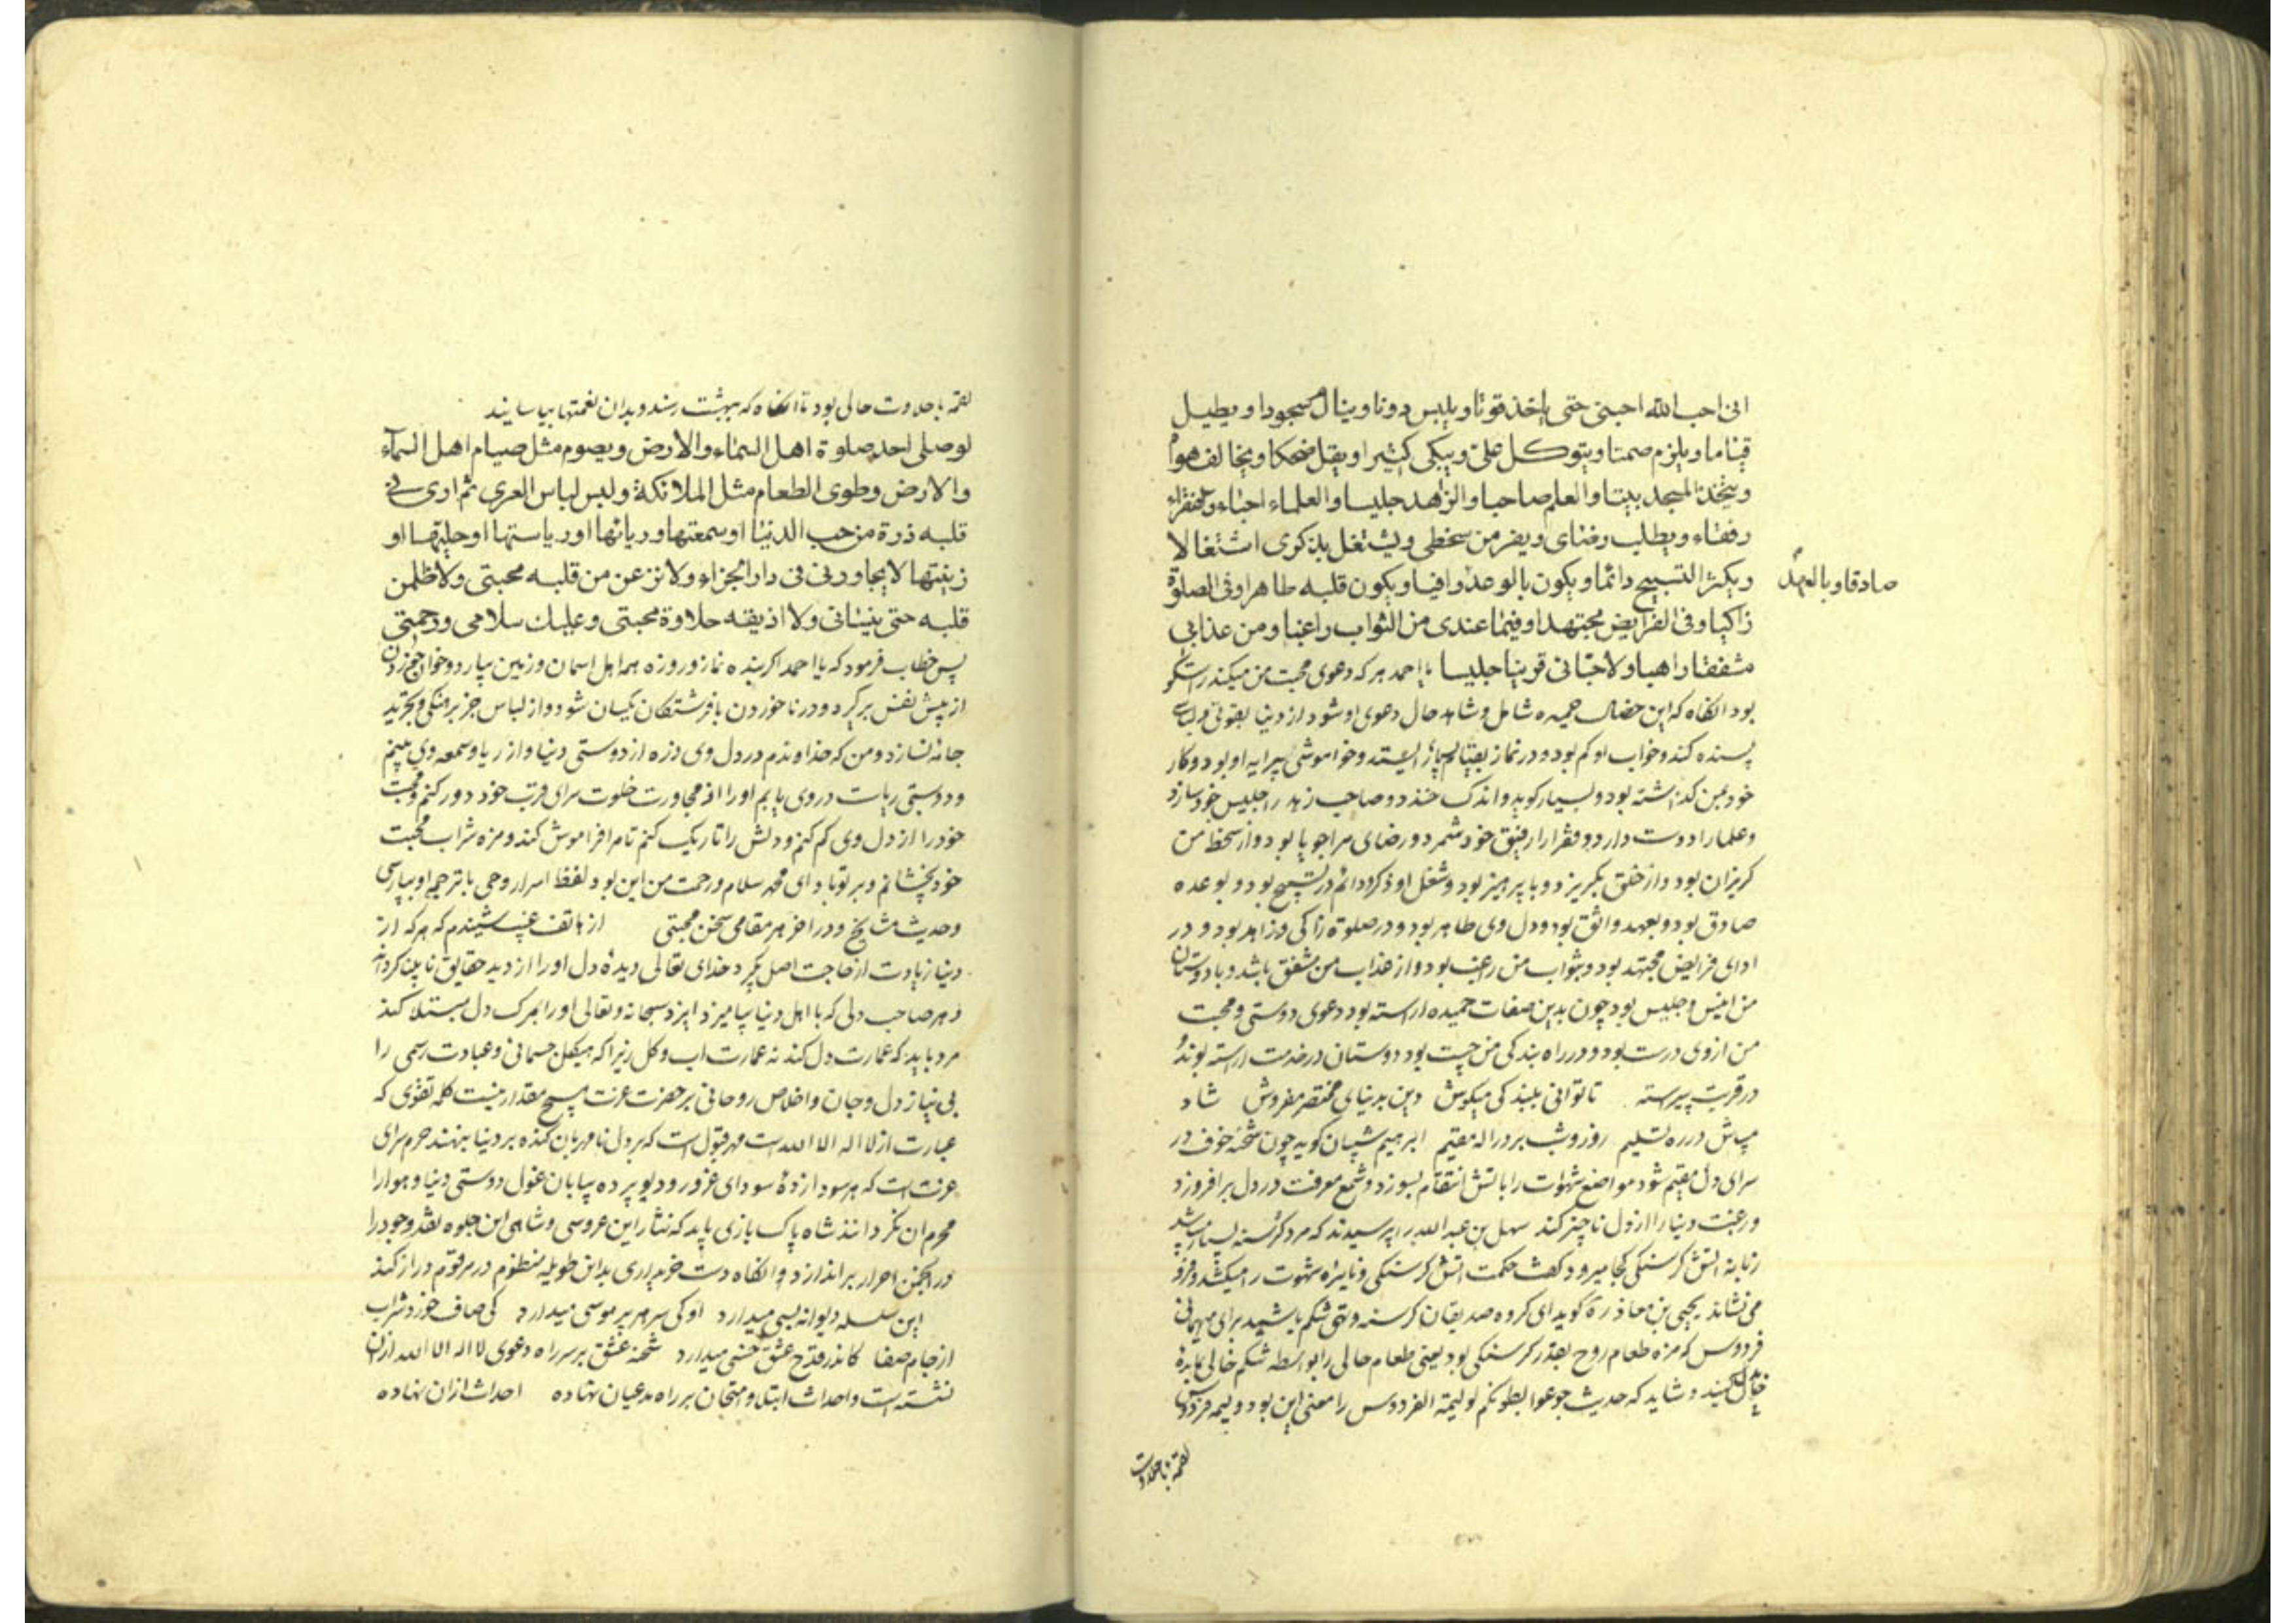 انی احب الله احبنی حتی یاخذ قوتا ویلبس دونا وینال سجودا ویطیل
قیاما ویلزم صمتا ویتوکل علی ویبکی کثیرا ویقل ضحکا ویخالف هواه
ویتخذ المسجد بیتا والعلم صاحبا والزهد جلیسا والعلماء احباء والفقراء
رفقاء ویطلب رضای ویفر من سخطی ویشتغل بذکری اشتغالا
ویکثر التسبیح دائما ویکون بالوعد وافیا ویکون قلبه طاهرا وفی الصلوة
صادقا وبالعهد
زاکیا وفی الفرایض مجتهدا وفیما عندی من الثواب راغبا ومن عذابی
مشفقا راهبا ولاحبائی قرینا جلیسا یا احمد هرکه دعوی محبت من میکند راستکو
بود انکاه که این خصال حمیده شامل وشاهد حال دعوی او شود از دنیا بقوتی ولباسی
پسنده کند وخواب او کم بود ودر نماز بقیام ایستد وخواموشی پیرایه او بود وکار
خود بمن کذاشته بود وبسیار کوید واندک خندد وصاحب زهد را جلیس خود سازد
وعلما را دوست دارد وفقرا را رفیق خود شمرد ورضای مرا جویا بود واز سخط من
کریزان بود واز خلق بکریزد وبا پرهیز بود وشغل او ذکر ودائم در تسبیح بود وبوعده
صادق بود وبعهد واثق بود ودل وی طاهر بود ودر صلوة زاکی وزاهد بود ودر
ادای فرایض مجتهد بود وبثواب من راغب بود واز عذاب من مشفق باشد وبا دوستان
من انیس وجلیس بود چون بدین صفات حمیده اراسته بود دعوی دوستی ومحبت
من از وی درست بود ودر راه بندکی من چست بود دوستان در خدمت اراسته بوند و
در قربت پیراسته تا توانی ببندکی میکوش دین بدنیای مختصر مفروش شاد
میباش در ره تسلیم روز وشب بر در اله مقیم ابرهیم شیبان کوید چون شحنه خوف در
سرای دل مقیم شود مواضع شهوات را باتش انتقام بسوزد وشمع معرفت در دل بر افروزد
ورغبت دنیا را از دل ناچیز کند سهل بن عبد الله را پرسیدند که مرد کرسنه بسیار باشد
زبانه اتش کرسنکی کجا میرود کفت حکمت اتش کرسنکی ونایره شهوت را میکشد وفرو
می نشاند یحیی بن معاذ رة کوید ای کروه صدیقان کرسنه وتهی شکم باشید برای مهمانی
فردوس که مزه طعام روح بقدر کرسنکی بود یعنی طعام حالی را بواسطه شکم خالی
خیال کنید وشاید که حدیث جوعوا بطونکم لولیمة الفردوس را معنی این بود ولیمه فردوس
لقمه با حلاوت
لقمه با حلاوت حالی بود تا انکاه که ببهشت رسند وبدان نعمتها بیاسایند
لو صلی احد صلوة اهل السماء والارض ویصوم مثل صیام اهل السماء
والارض وطوی الطعام مثل الملائکة ولبس لباس العری ثم اری فی
قلبه ذرة من حب الدنیا او سمعتها وریائها او ریاستها او حلیتها او
زینتها لا یجاورنی فی دار الجزاء ولانزعن من قلبه محبتی ولاظلمن
قلبه حتی ینسانی ولا اذیقه حلاوة محبتی وعلیک سلامی ورحمتی
پس خطاب فرمود که یا احمد اکر بنده نماز وروزه همه اهل اسمان وزمین بیارد وخوان
از پیش نفس بر کیرد ودر ناخوردن با فرشتکان یکسان شود واز لباس جز برهنکی وتجرید
جامه نسازد ومن که خداوندم در دل وی ذره از دوستی دنیا واز ریا وسمعه وی بینم
ودوستی ریاست در وی یابم او را از مجاورت خلوت سرای قرب خود دور کنم ومحبت
خود را از دل وی کم کنم ودلش را تاریک کنم تا مرا فراموش کند ومزه شراب محبت
خود نچشانم وبر تو باد ای محمد سلام ورحمت من این بود لفظ اسرار وحی با ترجمه او بپارسی
وحدیث مشایخ ودر اخر هر مقامی سخن محبتی از هاتف غیب شنیدم که هرکه از
دنیا زیادت از حاجت اصل بکیرد خدای تعالی دیدۀ دل او را از دید حقایق نابینا کرداند
وهر صاحب دلی که با اهل دنیا بیامیزد ایزد سبحانه وتعالی او را بمرک دل مبتلا کند
مرد باید که عمارت دل کند نه عمارت اب وکل زیرا که هیکل جسمانی وعبادت رسمی را
بی نیاز دل وجان واخلاص روحانی بر حضرت عزت هیچ مقدار نیست کلمه تقوی که
عبارت از لا اله الا الله است مهر قبول است که بر دل نامهربان کنده بر دنیا بنهند حرم سرای
عزت است که هر سودا زدۀ سودای غرور ودیو برده بیابان غول دوستی دنیا وهوا را
محرم ان نکردانند شاه پاک بازی باید که نثار این عروسی وشاهی این جلوه نقد وجود را
در انجمن احرار بر اندازد وانکاه دست خریداری بداین طویله منظوم در مرقوم دراز کند
این سلسله دیوانه بسی میدارد او کی سر هر بر موسی میدارد کی صاف خورد شراب
از جام صفا کاندر قدح عشق خسی میدارد شحنه عشق بر سر راه دعوی لا اله الا الله ازان
نشسته است واحداث ابتلا وامتحان بر راه مدعیان نهاده احداث ازان نهاده